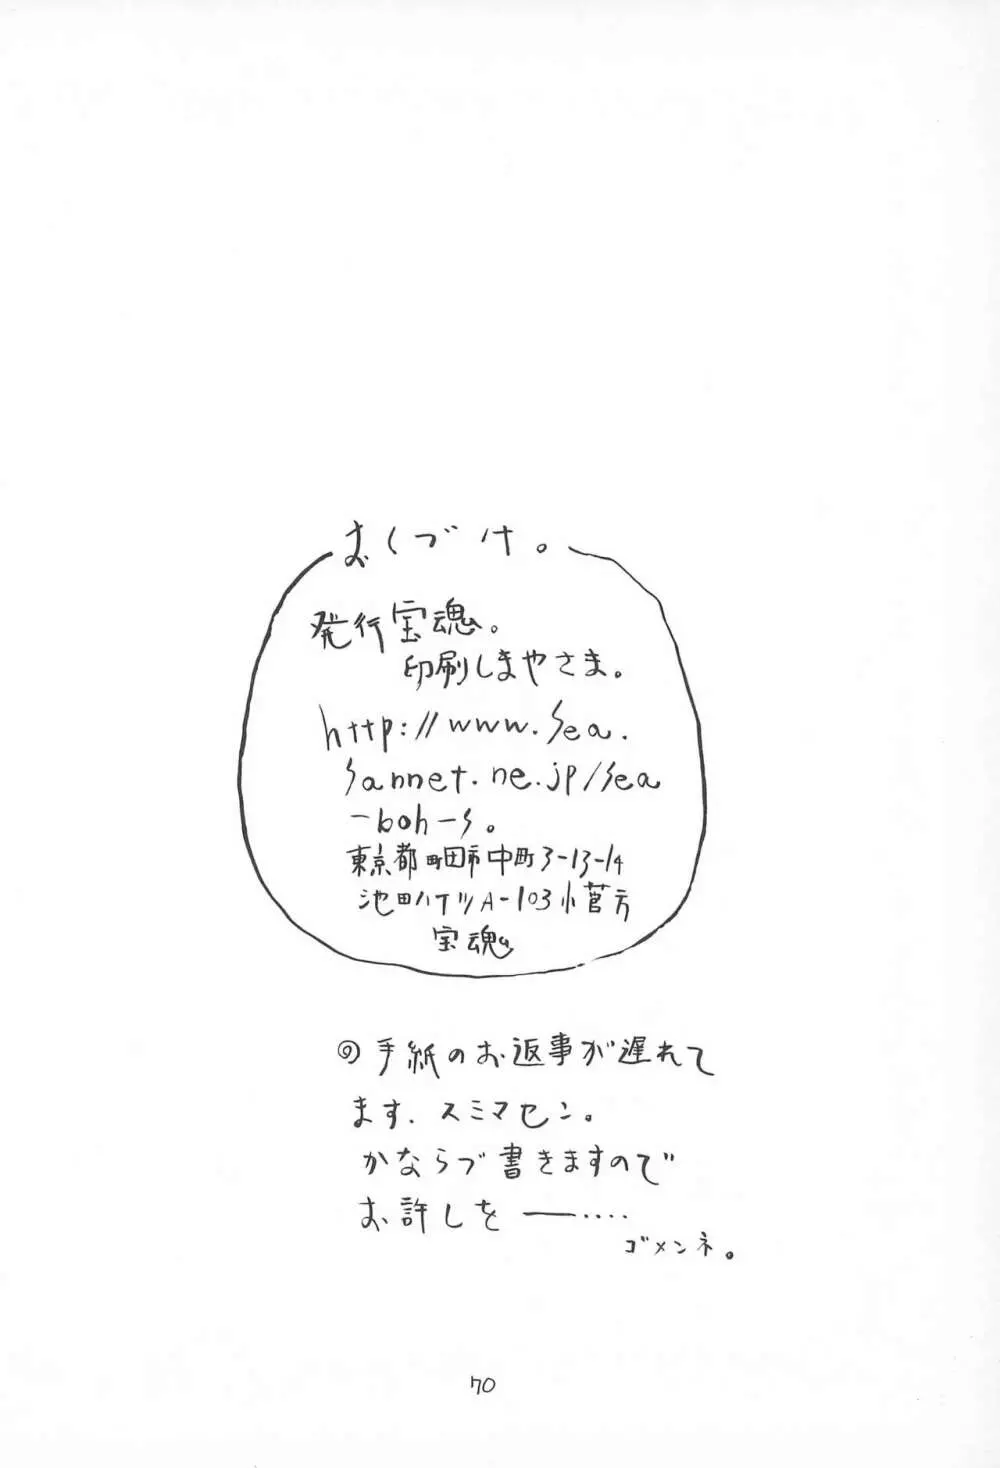 おくづけ。
発行宝魂。
印刷しまやさま。
http://www.sea.
sannet.ne.jp/sea
-boh-s。
東京都町田市中町3-13-14
池田ハイツA-103小菅方
宝魂
手紙のお返事が遅れて
ます、スミマセン。
かならづ書きますので
お許しを――‥‥
ゴメンネ。
70